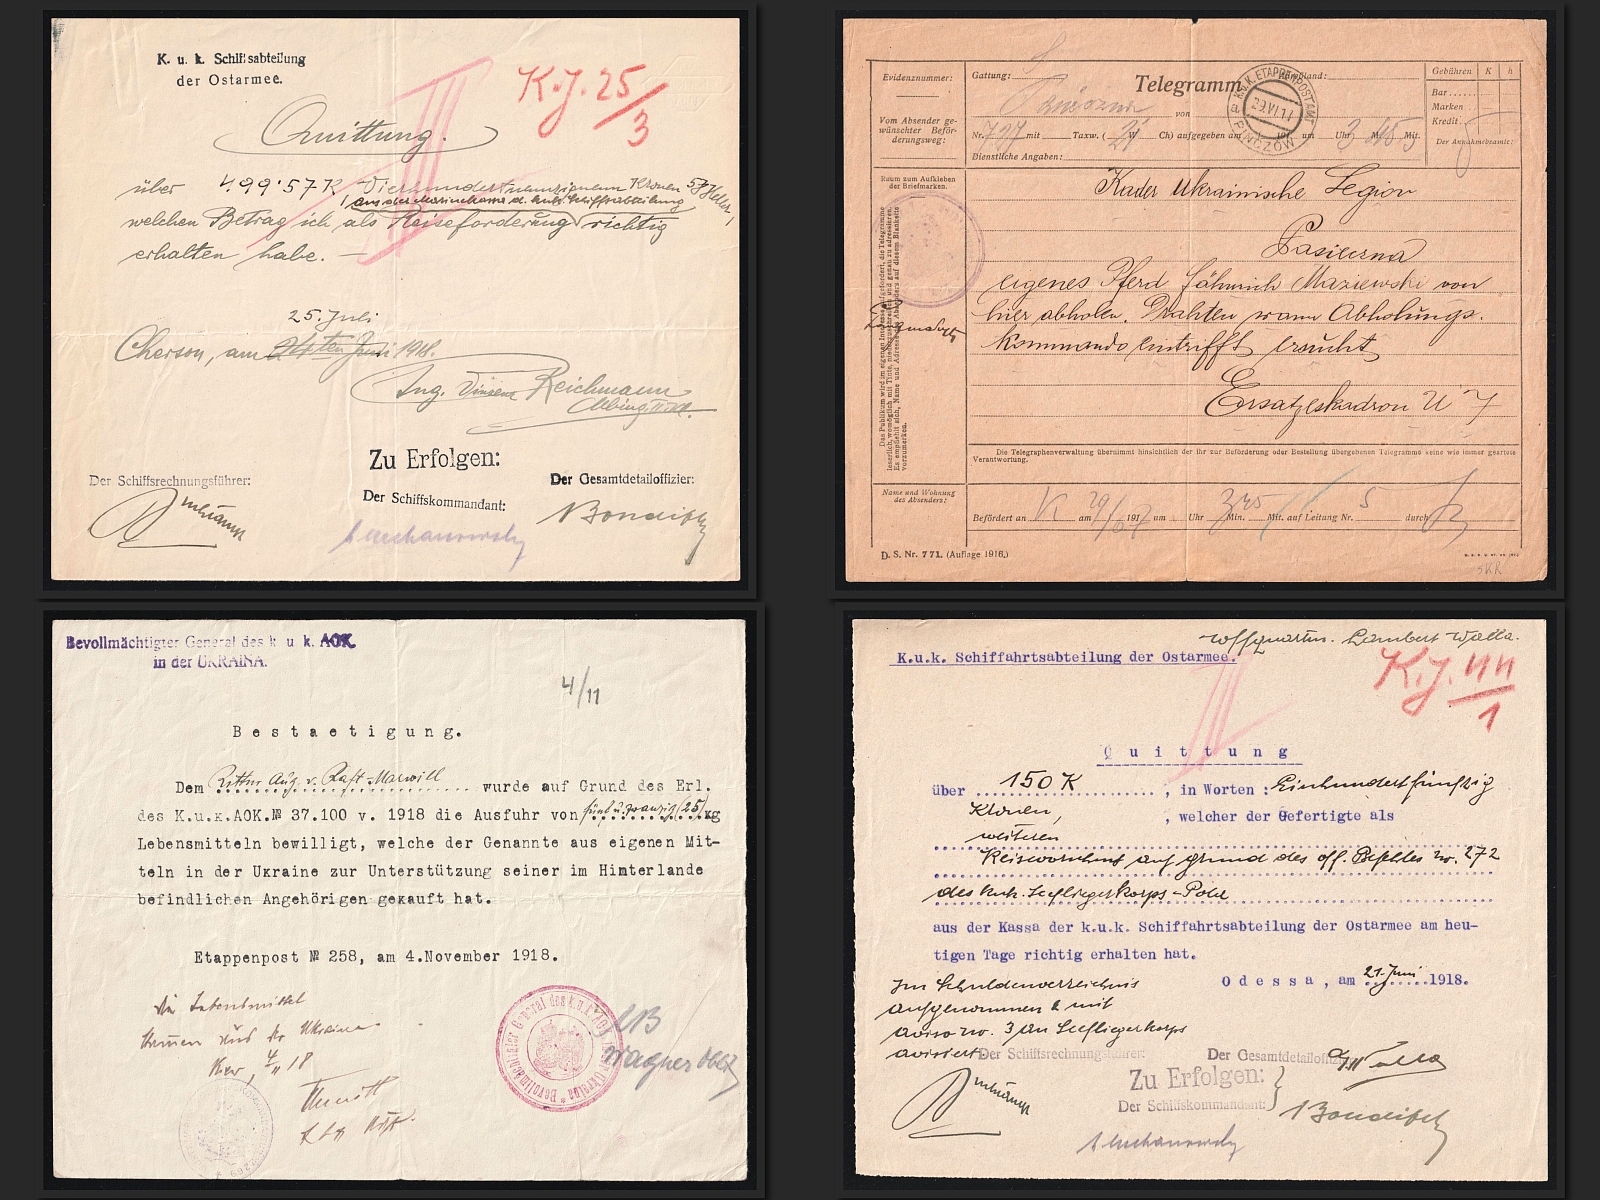 K. u. k. Schiffsabteilung
der Ostarmee.
K.J. 25/3
Quittung.
über 499·57 K Vierhundertneunzigneun Kronen 57 Heller
welchen Betrag ich als Reiseforderung richtig
erhalten habe.
25. Juli
Cherson, am 1918.
Ing. Reichmann
Zu Erfolgen:
Der Schiffsrechnungsführer:
Der Schiffskommandant:
Der Gesamtdetailoffizier:
Evidenznummer:
Vom Absender gewünschter Beförderungsweg:
Gattung:
Telegramm
K.u.K. ETAPPENPOSTAMT
29.VI.17
PINCZÓW
von
Nr. 727 mit Taxw. (21 W Ch) aufgegeben am um Uhr 3 45 Mit.
Dienstliche Angaben:
Gebühren K h
Bar
Marken
Kredit
Der Annahmebeamte:
Raum zum Aufkleben
der Briefmarken.
Kader Ukrainische Legion
eigenes Pferd Fähnrich Maziewski von
hier abholen. Drahten wann Abholungs.
kommando eintrifft ersucht
Ersatzeskadron U 7
Die Telegraphenverwaltung übernimmt hinsichtlich der ihr zur Beförderung oder Bestellung übergebenen Telegramme keine wie immer geartete
Verantwortung.
Name und Wohnung
des Absenders:
Befördert an K am 29/6 1917 um Uhr 345 Min. Mit. auf Leitung Nr. 5 durch
D. S. Nr. 771. (Auflage 1916.)
Bevollmächtigter General des k. u. k. AOK.
in der UKRAINA.
4/11
Bestaetigung.
Dem wurde auf Grund des Erl.
des K.u.k.AOK.№ 37.100 v. 1918 die Ausfuhr von fünf u. zwanzig (25) kg
Lebensmitteln bewilligt, welche der Genannte aus eigenen Mit-
teln in der Ukraine zur Unterstützung seiner im Hinterlande
befindlichen Angehörigen gekauft hat.
Etappenpost № 258, am 4.November 1918.
Die Lebensmittel
stammen aus der Ukraine
Wagner Obst
K.u.k. Schiffahrtsabteilung der Ostarmee.
K.J. 44/1
Quittung
über 150 K, in Worten : Einhundertfünfzig
Kronen, , welcher der Gefertigte als
weiteren
Reisevorschuss auf Grund des off. Befehles No. 272
des k.u.k. Seefliegerkorps - Pola
aus der Kassa der k.u.k. Schiffahrtsabteilung der Ostarmee am heu-
tigen Tage richtig erhalten hat.
Odessa, am 21. Juni 1918.
Im Schuldenverzeichnis
aufgenommen & mit
aviso no. 3 an Seefliegerkorps
avisiert
Der Schiffsrechnungsführer:
Der Gesamtdetailoffizier
Zu Erfolgen:
Der Schiffskommandant: